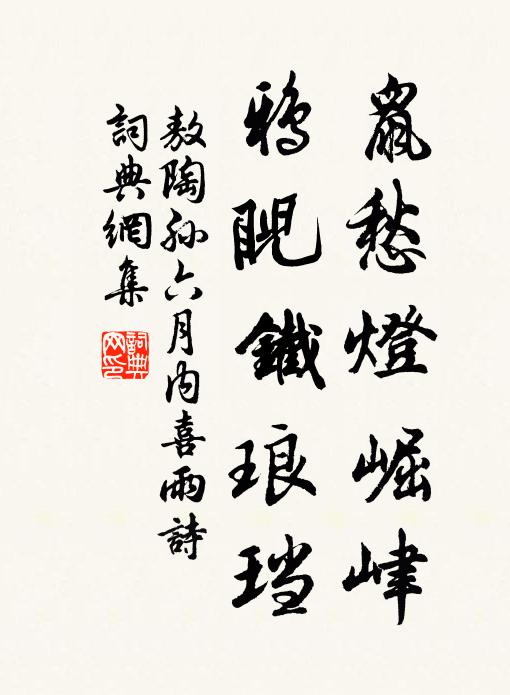 鼠愁燈崛崒
鴉睨鐵琅璫
敖陶孫六月內喜雨詩
詞典網集
詞典